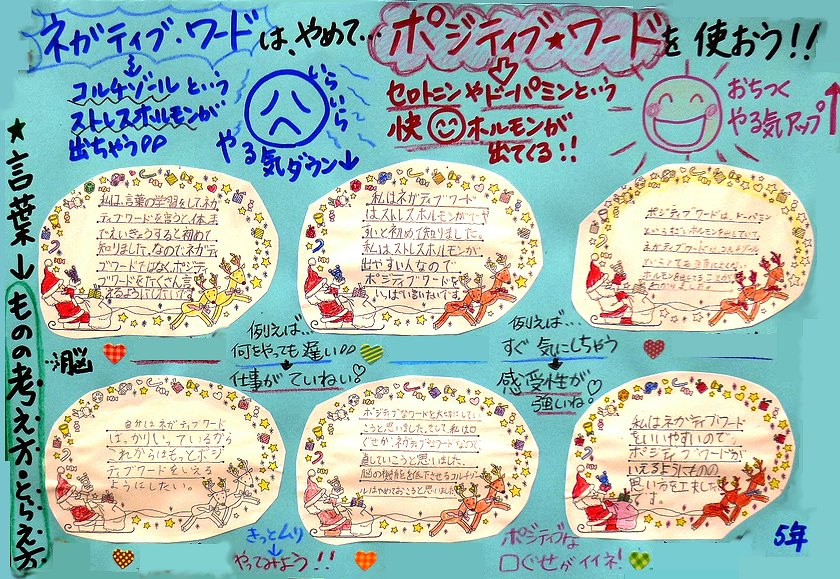 ネガティブ・ワードは、やめて…ポジティブ★ワードを使おう!!
↓
コルチゾールという
ストレスホルモンが
出ちゃう
いらいら
やる気ダウン↓
セロトニンやドーパミンという
快ホルモンが
出てくる!!
おちつく
やる気アップ↑
★言葉→ものの考え方・とらえ方
…脳
私は、言葉の学習をしてネガ
ティブワードを言うと、体ま
でえいきょうすると初めて
知りました。なのでネガティ
ブワードではなく、ポジティ
ブワードをたくさん言
私はネガティブワード
はストレスホルモンがでや
すいと初めて知りました。
私はストレスホルモンが
出やすい人なので
ポジティブワードを
いっぱい言いたいです。
ポジティブワードは、ドーパミン
というホルモンを出していて、
ネガティブワードは、コルチゾール
ホルモンを
わかりました。
例えば…
何をやっても遅い
↓
仕事がていねい!
例えば…
すぐ気にしちゃう
↓
感受性が
強いね!
自分はネガティブワード
ばっかりいっているから
これからはもっとポジ
ティブワードをいえる
ようにしたい。
ポジティブなワードを大切にしてい
こうと思いました。そして、私は口
ぐせがネガティブなワードなので
直していこうと思いました。
脳の機能を低下させるコルチゾー
ルはやめておこうと思いました
私はネガティブワード
をいいやすいので、
ポジティブワードが
いえるようにものの
思い方を工夫した
です。
きっとムリ
↓
やってみよう!!
ポジティブな
口ぐせがイイネ!
5年